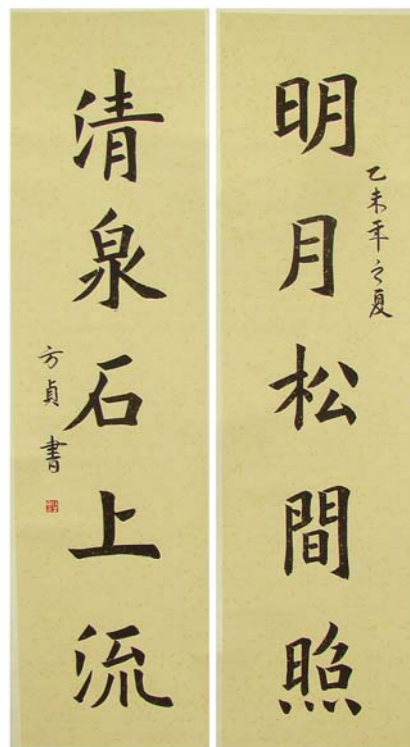 明月松間照
乙未年之夏
清泉石上流
方貞書